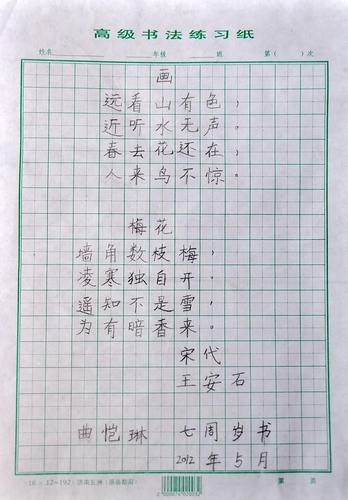 高级书法练习纸
姓名 年级 班 第( )次
画
远看山有色,
近听水无声。
春去花还在,
人来鸟不惊。
梅花
墙角数枝梅,
凌寒独自开。
遥知不是雪,
为有暗香来。
宋代
王安石
曲恺琳 七周岁书
2012年5月
(16×12=192) 第 页